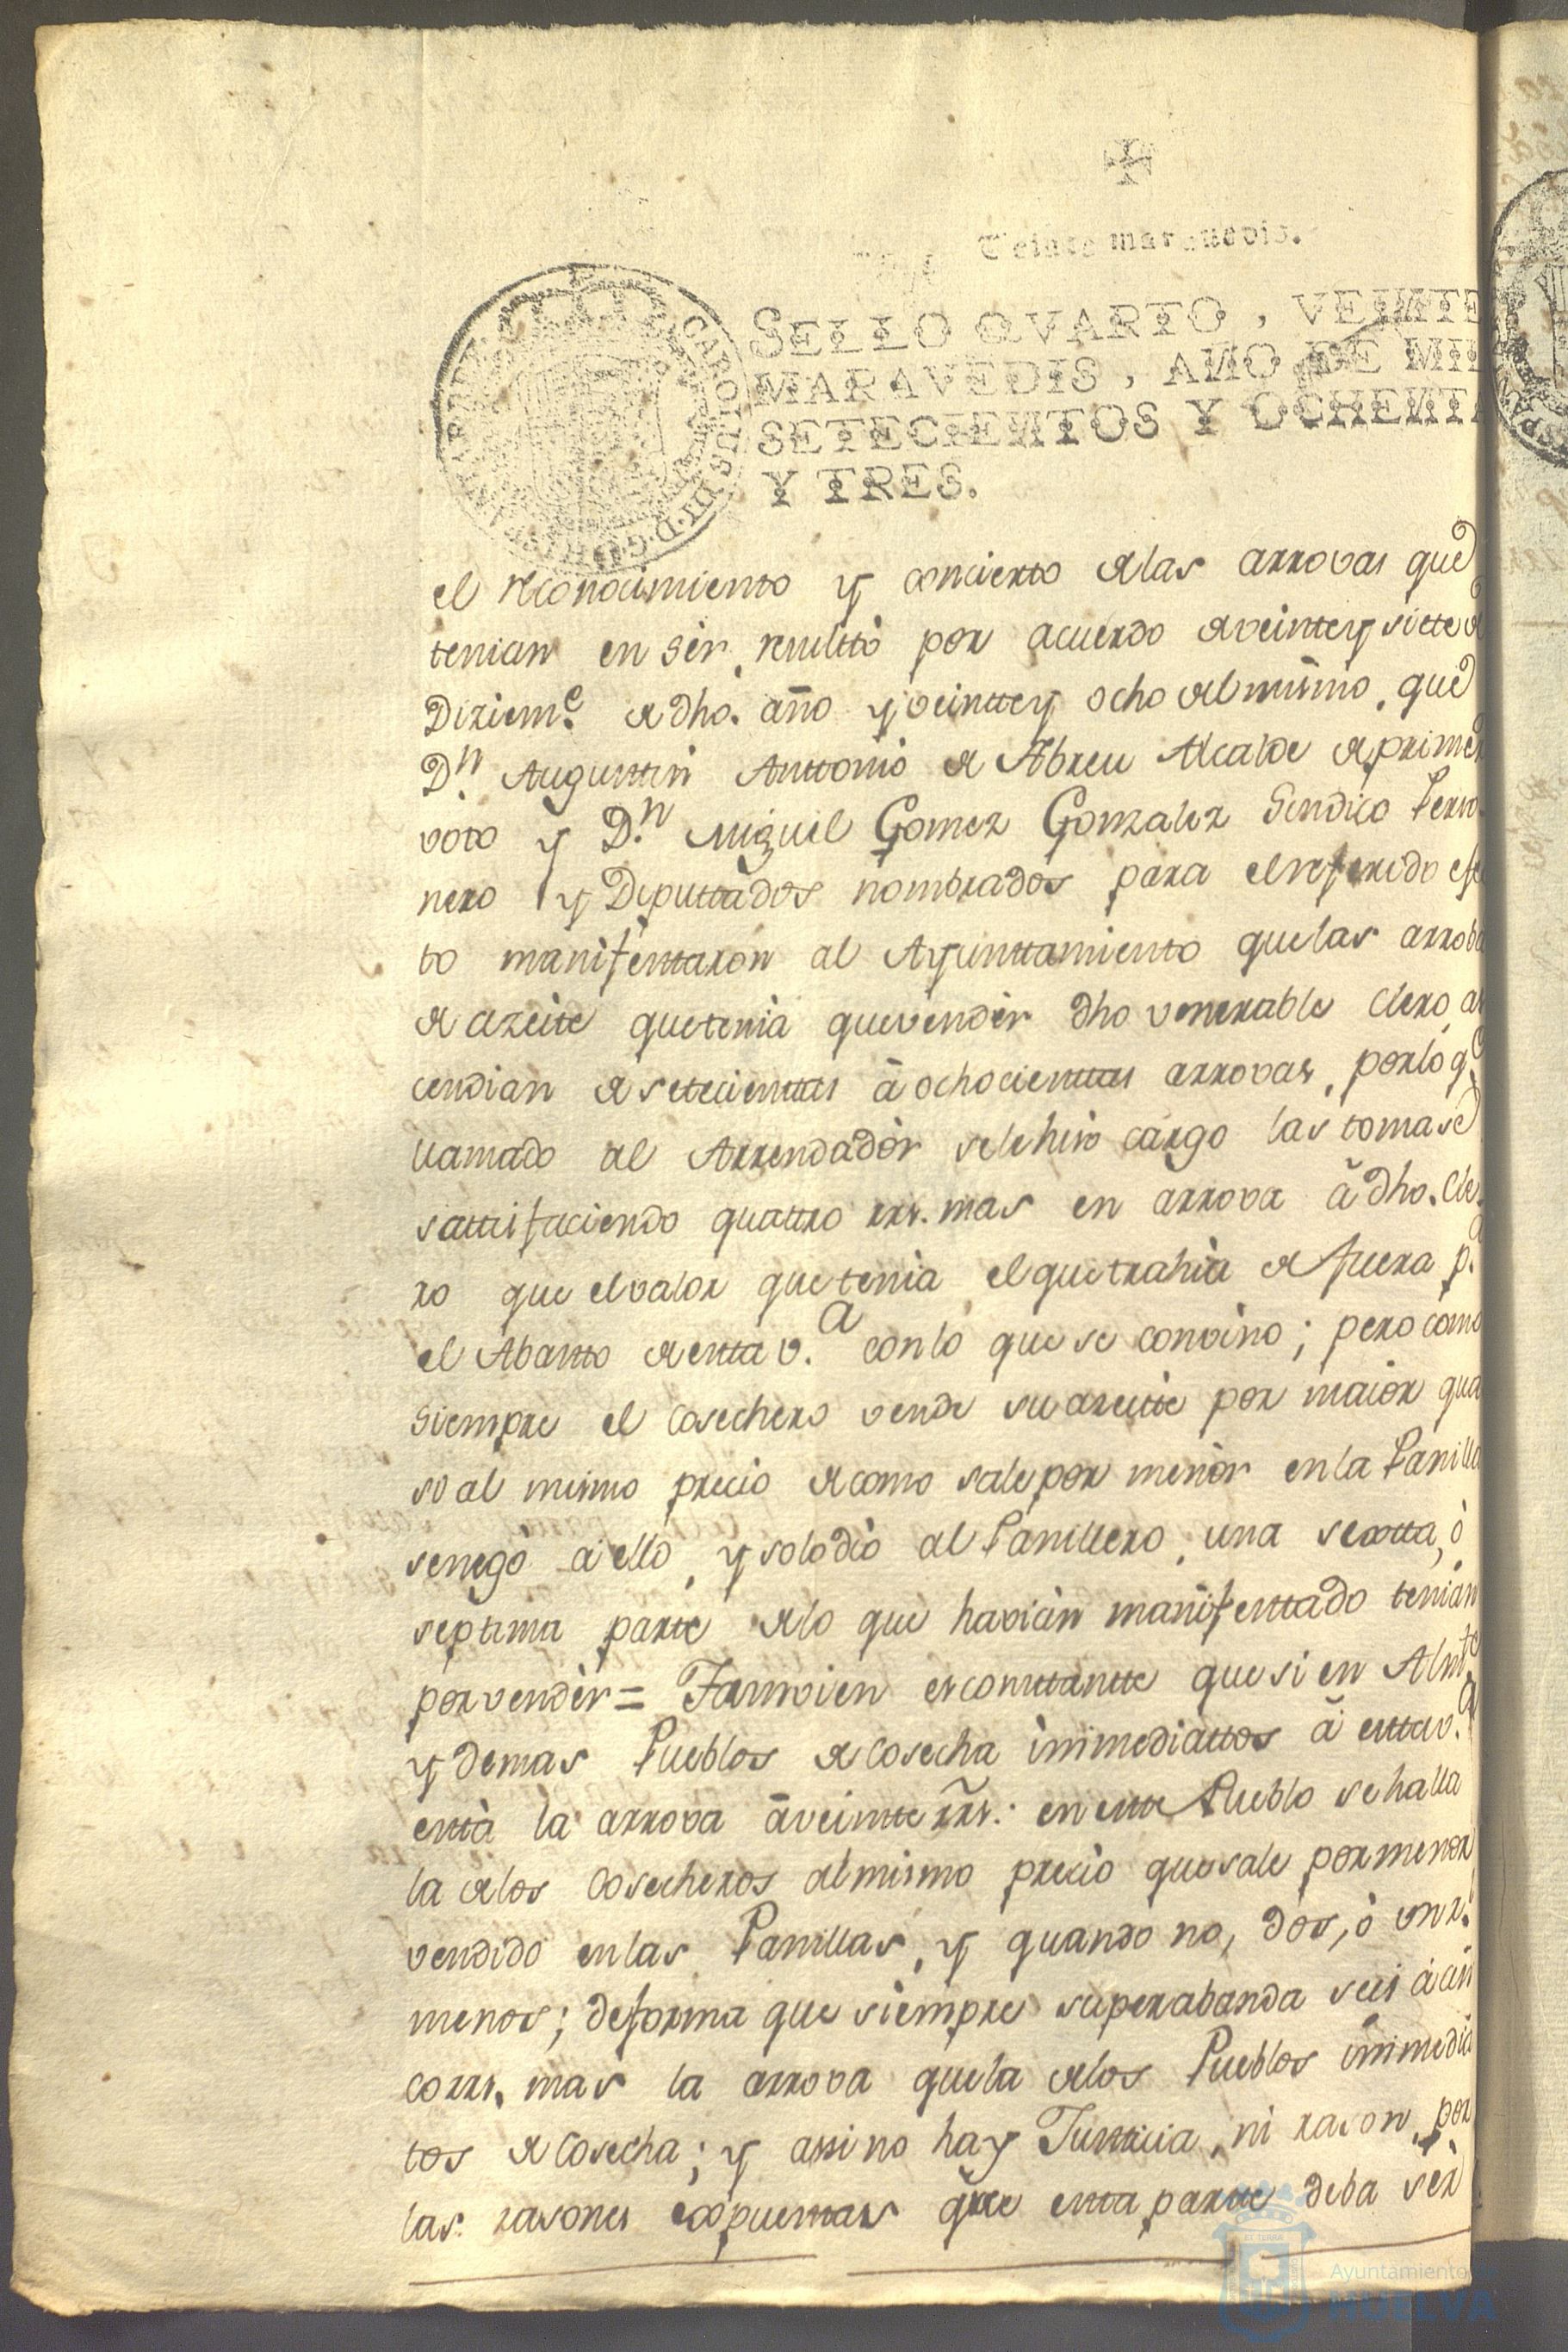 Veinte maravedis.
SELLO QVARTO, VEINTE
MARAVEDIS, AÑO DE MIL
SETECIENTOS Y OCHENTA
Y TRES.
CAROLUS III D. G. HISPANIAR
el reconocimiento y concierto de las arrovas que
tenian en ser, resultò por acuerdo de veintey siete de
Diziem.e de dho. año y veinttey ocho del mismo, que
D.n Augustin Anttonio de Abreu Alcalde de primer
voto y D.n Miguel Gomez Gonzalez Sindico Perso
nero y Deputtados nombrados para el referido efe
to manifestaron al Ayunttamiento que las arroba
de azeite que tenia que vender dho venerable Clero as
cendian de setecienttas â ochocienttas arrovas, por lo q.e
llamado al Arrendadòr se le hizo cargo las tomase
sattisfaciendo quattro rrs. mas en arrova â dho. Cle
ro que el valor que tenia el que trahia de fuera p.a
el Abasto de esta v.a con lo que se convino; pero como
siempre el Cosechero vende su azeitte por maior qua
so al mismo precio de como sale por menor en la Panilla
se negò a ello, y solo diò al Panillero, una sextta, ò
septima parte de lo que havian manifestado tenian
por vender = Tamvien es consttantte que si en Almte
y demas Pueblos de Cosecha immediattos â estta v.a
està la arrova â veintte rrs.: en este Pueblo se halla
la de los Cosecheros al mismo precio que sale por menor
vendido en las Panillas, y quando no, dos, ò un r.
menos; de forma que siempre superabanda seis â cin
co rrs. mas la arrova que la de los Pueblos immedia
tos de Cosecha; y assi no hay Justticia, ni rason, por
las rasones expuestas que esta partte deba ser
Ayuntamiento de
HUELVA